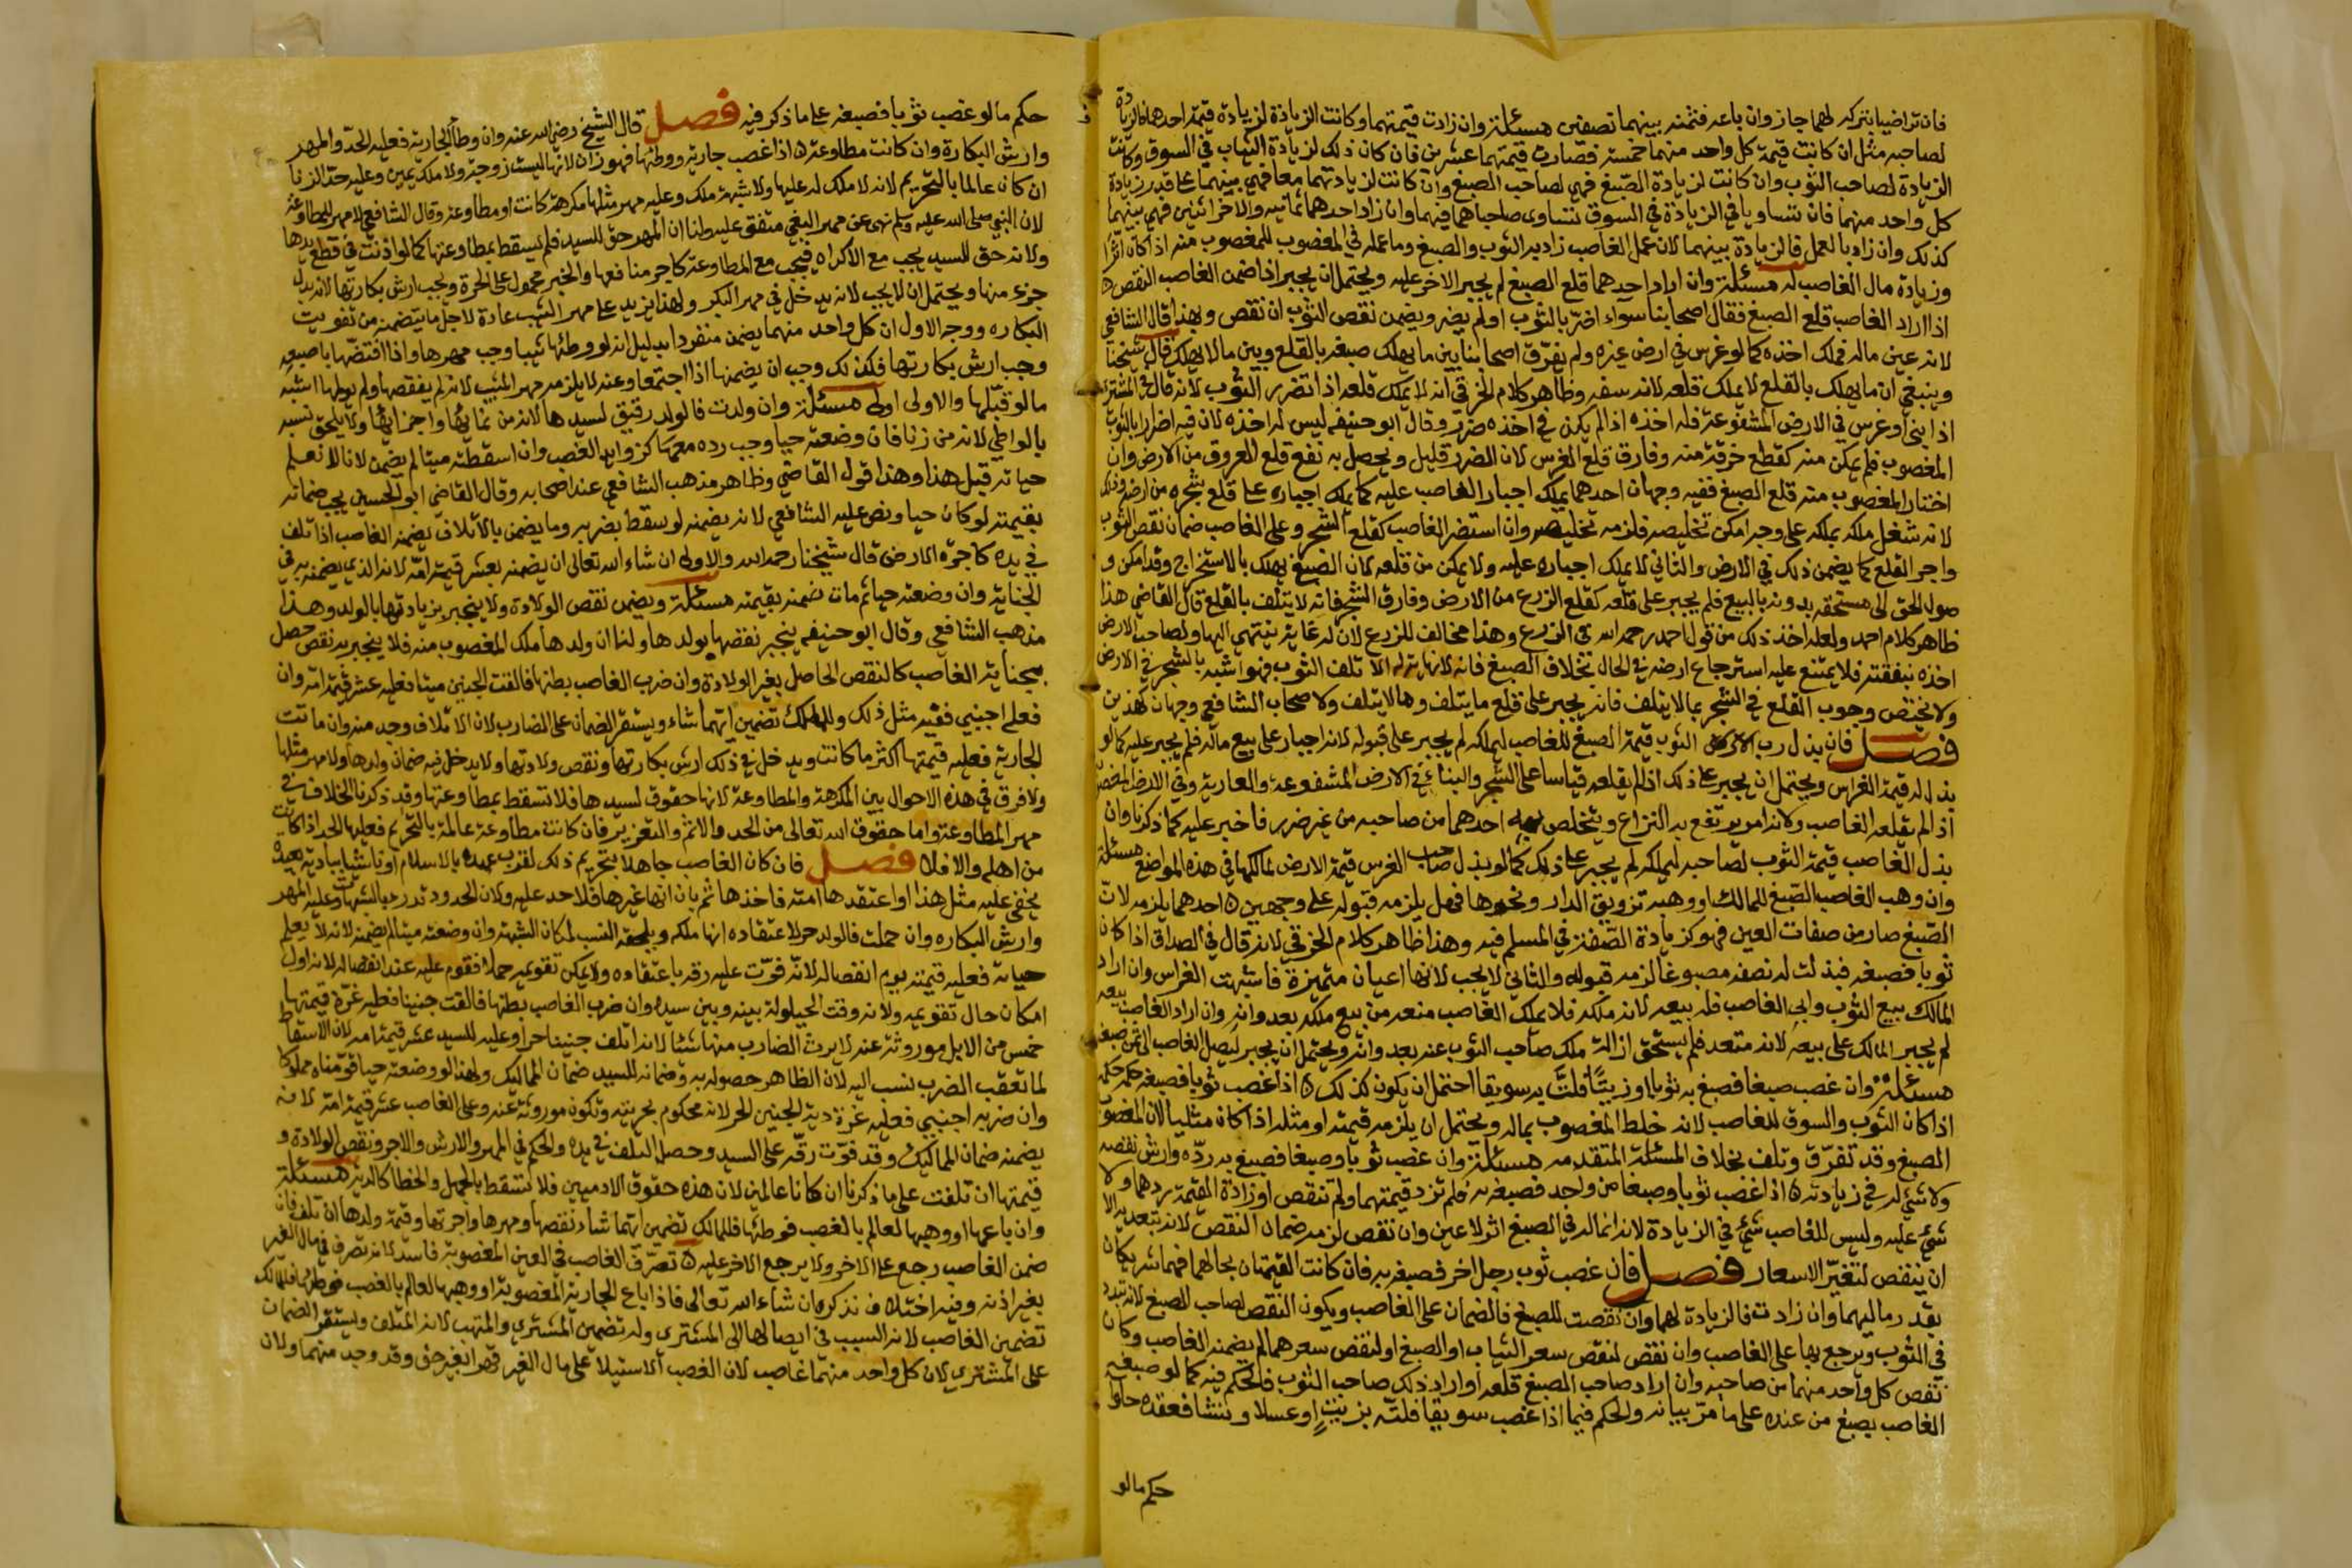 فان تراضيا بتركه لهما جاز وان باعه فثمنه بينهما نصفين مسئلة وان زادت قيمتهما وكانت الزيادة لزيادة قيمة احدهما فالزيادة
لصاحبه مثل ان كانت قيمة كل واحد منهما خمسة فصارت قيمتهما عشرين فان كان ذلك لزيادة الثياب في السوق وكانت
الزيادة لصاحب الثوب وان كانت لزيادة الصبغ فهي لصاحب الصبغ وان كانت لزيادتهما معا فهي بينهما على قدر زيادة
كل واحد منهما فان تساويا في الزيادة في السوق تساوى صاحباهما فيهما وان زاد احدهما ثمانية والاخر اثنين فهي بينهما
كذلك وان زاد بالعمل فالزيادة بينهما لان عمل الغاصب زاد به الثوب والصبغ وما عمله في المغصوب للمغصوب منه اذا كان اثرا
وزيادة مال الغاصب له مسئلة وان اراد احدهما قلع الصبغ لم يجبر الاخر عليه ويحتمل ان يجبر اذا ضمن الغاصب النقص
اذا اراد الغاصب قلع الصبغ فقال اصحابنا سواء اضر بالثوب او لم يضر ويضمن نقص الثوب ان نقص وبهذا قال الشافعي
لانه عين ماله فملك اخذه كما لو غرس في ارض غيره ولم يفرق اصحابنا بين ما يهلك صبغه بالقلع وبين ما لا يهلك قال شيخنا
وينبغي ان ما يهلك بالقلع لا يملك قلعه لانه سفه وظاهر كلام الخرقي انه لا يملك قلعه اذا تضرر الثوب لانه قال في المشتري
اذا بنى او غرس في الارض المشفوعة فله اخذه اذا لم يكن في اخذه ضرر وقال ابو حنيفه ليس له اخذه لان فيه اضرارا بالثوب
المغصوب فلم يمكن منه كقطع خرقة منه وفارق قلع الغرس لان الضرر قليل ويحصل به نفع قلع العروق من الارض وان
اختار المغصوب منه قلع الصبغ ففيه وجهان احدهما يملك اجبار الغاصب عليه كما يملك اجباره على قلع شجره من ارضه وذلك
لانه شغل ملكه بملكه على وجه امكن تخليصه فلزمه تخليصه وان استضر الغاصب كقلع الشجر وعلى الغاصب ضمان نقص الثوب
واجر القلع كما يضمن ذلك في الارض والثاني لا يملك اجباره عليه ولا يمكن من قلعه لان الصبغ يهلك بالاستخراج وقد امكن و
صول الحق الى مستحقه بدونه بالبيع فلم يجبر على قلعه كقلع الزرع من الارض وفارق الشجر فانه لا يتلف بالقلع قال القاضي هذا
ظاهر كلام احمد ولعله اخذ ذلك من قول احمد رحمه الله في الزرع وهذا مخالف للزرع لان له غاية ينتهي اليها ولصاحب الارض
اخذه بنفقته فلا يمتنع عليه استرجاع ارضه في الحال بخلاف الصبغ فانه لا نهاية له الا تلف الثوب فهو اشبه بالشجر في الارض
ولا يختص وجوب القلع في الشجر بما لا يتلف فانه يجبر على قلع ما يتلف وما لا يتلف ولاصحاب الشافعي وجهان كهذين
فصل فان بذل رب الثوب قيمة الصبغ للغاصب ليملكه لم يجبر على قبوله لانه اجبار على بيع ماله فلم يجبر عليه كما لو
بذل له قيمة الغراس ويحتمل ان يجبر على ذلك اذا لم يقلعه قياسا على الشجر والبناء في الارض المشفوعة والعارية وفي الارض المغصوبة
اذا لم يقلعه الغاصب ولانه امر يرتفع به النزاع ويتخلص به احدهما من صاحبه من غير ضرر فاجبر عليه كما ذكرنا وان
بذل الغاصب قيمة الثوب لصاحبه ليملكه لم يجبر على ذلك كما لو بذل صاحب الغرس قيمة الارض لمالكها في هذه المواضع مسئلة
وان وهب الغاصب الصبغ للمالك او وهبه تزويق الدار ونحوها فهل يلزمه قبوله على وجهين احدهما يلزمه لان
الصبغ صار من صفات العين فهو كزيادة الصفة في المسلم فيه وهذا ظاهر كلام الخرقي لانه قال في الصداق اذا كان
ثوبا فصبغه فبذلت له نصفه مصبوغا لزمه قبوله والثاني لا يجب لانها اعيان متميزة فاشبهت الغراس وان اراد
المالك بيع الثوب وابى الغاصب فله بيعه لانه ملكه فلا يملك الغاصب منعه من بيع ملكه بعدوانه وان اراد الغاصب بيعه
لم يجبر المالك على بيعه لانه متعد فلم يستحق ازالة ملك صاحب الثوب عنه بعدوانه ويحتمل ان يجبر ليصل الغاصب الى ثمن صبغه
مسئلة وان غصب صبغا فصبغ به ثوبا او زيتا فلت به سويقا احتمل ان يكون كذلك اذا غصب ثوبا فصبغه حكمه حكم
اذا كان الثوب والسوق للغاصب لانه خلط المغصوب بماله ويحتمل ان يلزمه قيمته او مثله اذا كان مثليا لان المغصوب
الصبغ وقد تفرق وتلف بخلاف المسئلة المتقدمه مسئلة وان غصب ثوبا وصبغا فصبغ به رده وارش نقصه
ولا شيء له في زيادته اذا غصب ثوبا وصبغا من واحد فصبغه به فلم تزد قيمتهما ولم تنقص او زادة القيمة ردهما ولا
شيء عليه وليس للغاصب شيء في الزيادة لانه انما له في الصبغ اثر لا عين وان نقص لزمه ضمان النقص لانه بتعديه الا
ان ينقص لتغير الاسعار فصل فان غصب ثوب رجل اخر فصبغه به فان كانت القيمتان بحالهما فهما شريكان
بقدر ماليهما وان زادت فالزيادة لهما وان نقصت للصبغ فالضمان على الغاصب ويكون النقص لصاحب الصبغ لانه تبدد
في الثوب ويرجع بها على الغاصب وان نقص لنقص سعر الثياب او الصبغ او لنقص سعرهما لم يضمنه الغاصب وكان
نقص كل واحد منهما من صاحبه وان اراد صاحب الصبغ قلعه او اراد ذلك صاحب الثوب فالحكم فيه كما لو صبغه
الغاصب بصبغ من عنده على ما مر بيانه والحكم فيما اذا غصب سويقا فلته بزيت او عسلا ونشا فعقده حلوا
حكم ما لو
حكم ما لو غصب ثوبا فصبغه على ما ذكر فيه فصل قال الشيخ رضي الله عنه وان وطأ الجارية فعليه الحد والمهر
وارش البكارة وان كانت مطاوعة اذا غصب جارية ووطئها فهو زان لانها ليست زوجة ولا ملك يمين وعليه حد الزنا
ان كان عالما بالتحريم لانه لا ملك له عليها ولا شبهة ملك وعليه مهر مثلها مكرهة كانت او مطاوعة وقال الشافعي لا مهر للمطاوعة
لان النبي صلى الله عليه وسلم نهى عن مهر البغي متفق عليه ولنا ان المهر حق للسيد فلم يسقط بمطاوعتها كما لو اذنت في قطع يدها
ولانه حق للسيد يجب مع الاكراه فيجب مع المطاوعة كاجر منافعها والخبر محمول على الحرة ويجب ارش بكارتها لانه بدل
جزء منها ويحتمل ان لا يجب لانه يدخل في مهر البكر ولهذا يزيد على مهر الثيب عادة لاجل ما يتضمنه من تفويت
البكاره ووجه الاول ان كل واحد منهما يضمن منفردا بدليل انه لو وطئها ثيبا وجب مهرها واذا افتضها باصبعه
وجب ارش بكارتها فكذلك وجب ان يضمنها اذا اجتمعا وعنه لا يلزمه مهر الثيب لانه لم ينقصها ولم يولمها اشبه
ما لو قبلها والاولى اولى مسئلة وان ولدت فالولد رقيق لسيدها لانه من نمائها واجزائها ولا يلحق نسبه
بالواطي لانه من زنا فان وضعته حيا وجب رده معها كزوايد الغصب وان اسقطته ميتا لم يضمن لانا لا نعلم
حياته قبل هذا وهذا قول القاضي وظاهر مذهب الشافعي عند اصحابه وقال القاضي ابو الحسين يجب ضمانه
بقيمته لو كان حيا ونص عليه الشافعي لانه يضمنه لو سقط بضربه وما يضمن بالاتلاف يضمنه الغاصب اذا تلف
في يده كاجرة الارض قال شيخنا رحمه الله والاولى ان شاء الله تعالى ان يضمنه بعشر قيمة امه لانه الذي يضمنه به في
الجناية وان وضعته حيا ثم مات ضمنه بقيمته مسئلة ويضمن نقص الولادة ولا ينجبر بزيادتها بالولد وهذا
مذهب الشافعي وقال ابو حنيفه ينجبر نقصها بولدها ولنا ان ولدها ملك المغصوب منه فلا ينجبر به نقص حصل
بجناية الغاصب كالنقص الحاصل بغير الولادة وان ضرب الغاصب بطنها فالقت الجنين ميتا فعليه عشر قيمة امه وان
فعله اجنبي ففيه مثل ذلك وللمالك تضمين ايهما شاء ويستقر الضمان على الضارب لان الاتلاف وجد منه وان ماتت
الجارية فعليه قيمتها اكثر ما كانت ويدخل في ذلك ارش بكارتها ونقص ولادتها ولا يدخل فيه ضمان ولدها ولا مهر مثلها
ولا فرق في هذه الاحوال بين المكرهة والمطاوعة لانها حقوق لسيدها فلا تسقط بمطاوعتها وقد ذكرنا الخلاف في
مهر المطاوعة واما حقوق الله تعالى من الحد والاثم والتعزير فان كانت مطاوعة عالمة بالتحريم فعليها الحد اذا كانت
من اهله والا فلا فصل فان كان الغاصب جاهلا بتحريم ذلك لقرب عهده بالاسلام او ناشيا ببادية بعيدة
يخفى عليه مثل هذا او اعتقدها امته فاخذها ثم بان انها غيرها فلا حد عليه ولان الحدود تدرء بالشبهات وعليه المهر
وارش البكاره وان حملت فالولد حر لاعتقاده انها ملكه ويلحقه النسب لمكان الشبهة وان وضعته ميتا لم يضمنه لانه لا يعلم
حياته فعليه قيمته يوم انفصاله لانه فوت عليه رقه باعتقاده ولا يمكن تقويمه حملا فقوم عليه عند انفصاله لانه اول
امكان حال تقويمه ولانه وقت الحيلولة بينه وبين سيده وان ضرب الغاصب بطنها فالقت جنينا فعليه غرة قيمتها
خمس من الابل موروثة عنه لا يرث الضارب منها شئا لانه اتلف جنينا حرا وعليه للسيد عشر قيمة امه لان الاسقاط
لما تعقب الضرب نسب اليه لان الظاهر حصوله به وضمانه للسيد ضمان المماليك ولهذا لو وضعته حيا قومناه مملوكا
وان ضربه اجنبي فعليه غرة دية الجنين الحر لانه محكوم بحريته وتكون موروثة عنه وعلى الغاصب عشر قيمة امه لانه
يضمنه ضمان المماليك وقد فوت رقه على السيد وحصل التلف في يده والحكم في المهر والارش والاجر ونقص الولادة و
قيمتها ان تلفت على ما ذكرنا ان كانا عالمين لان هذه حقوق الادميين فلا تسقط بالجهل والخطا كالدية مسئلة
وان باعها او وهبها لعالم بالغصب فوطئها فللمالك تضمين ايهما شاء نقصها ومهرها واجرتها وقيمة ولدها ان تلف فان
ضمن الغاصب رجع على الاخر ولا يرجع الاخر عليه تصرف الغاصب في العين المغصوبة فاسد لانه تصرف في مال الغير
بغير اذنه وفيه اختلاف نذكره ان شاء الله تعالى فاذا باع الجارية المغصوبة او وهبها لعالم بالغصب فوطئها فللمالك
تضمين الغاصب لانه السبب في ايصالها الى المشتري وله تضمين المشتري والمتهب لانه المتلف ويستقر الضمان
على المشتري لان كل واحد منهما غاصب لان الغصب الاستيلا على مال الغير قهرا بغير حق وقد وجد منهما ولان